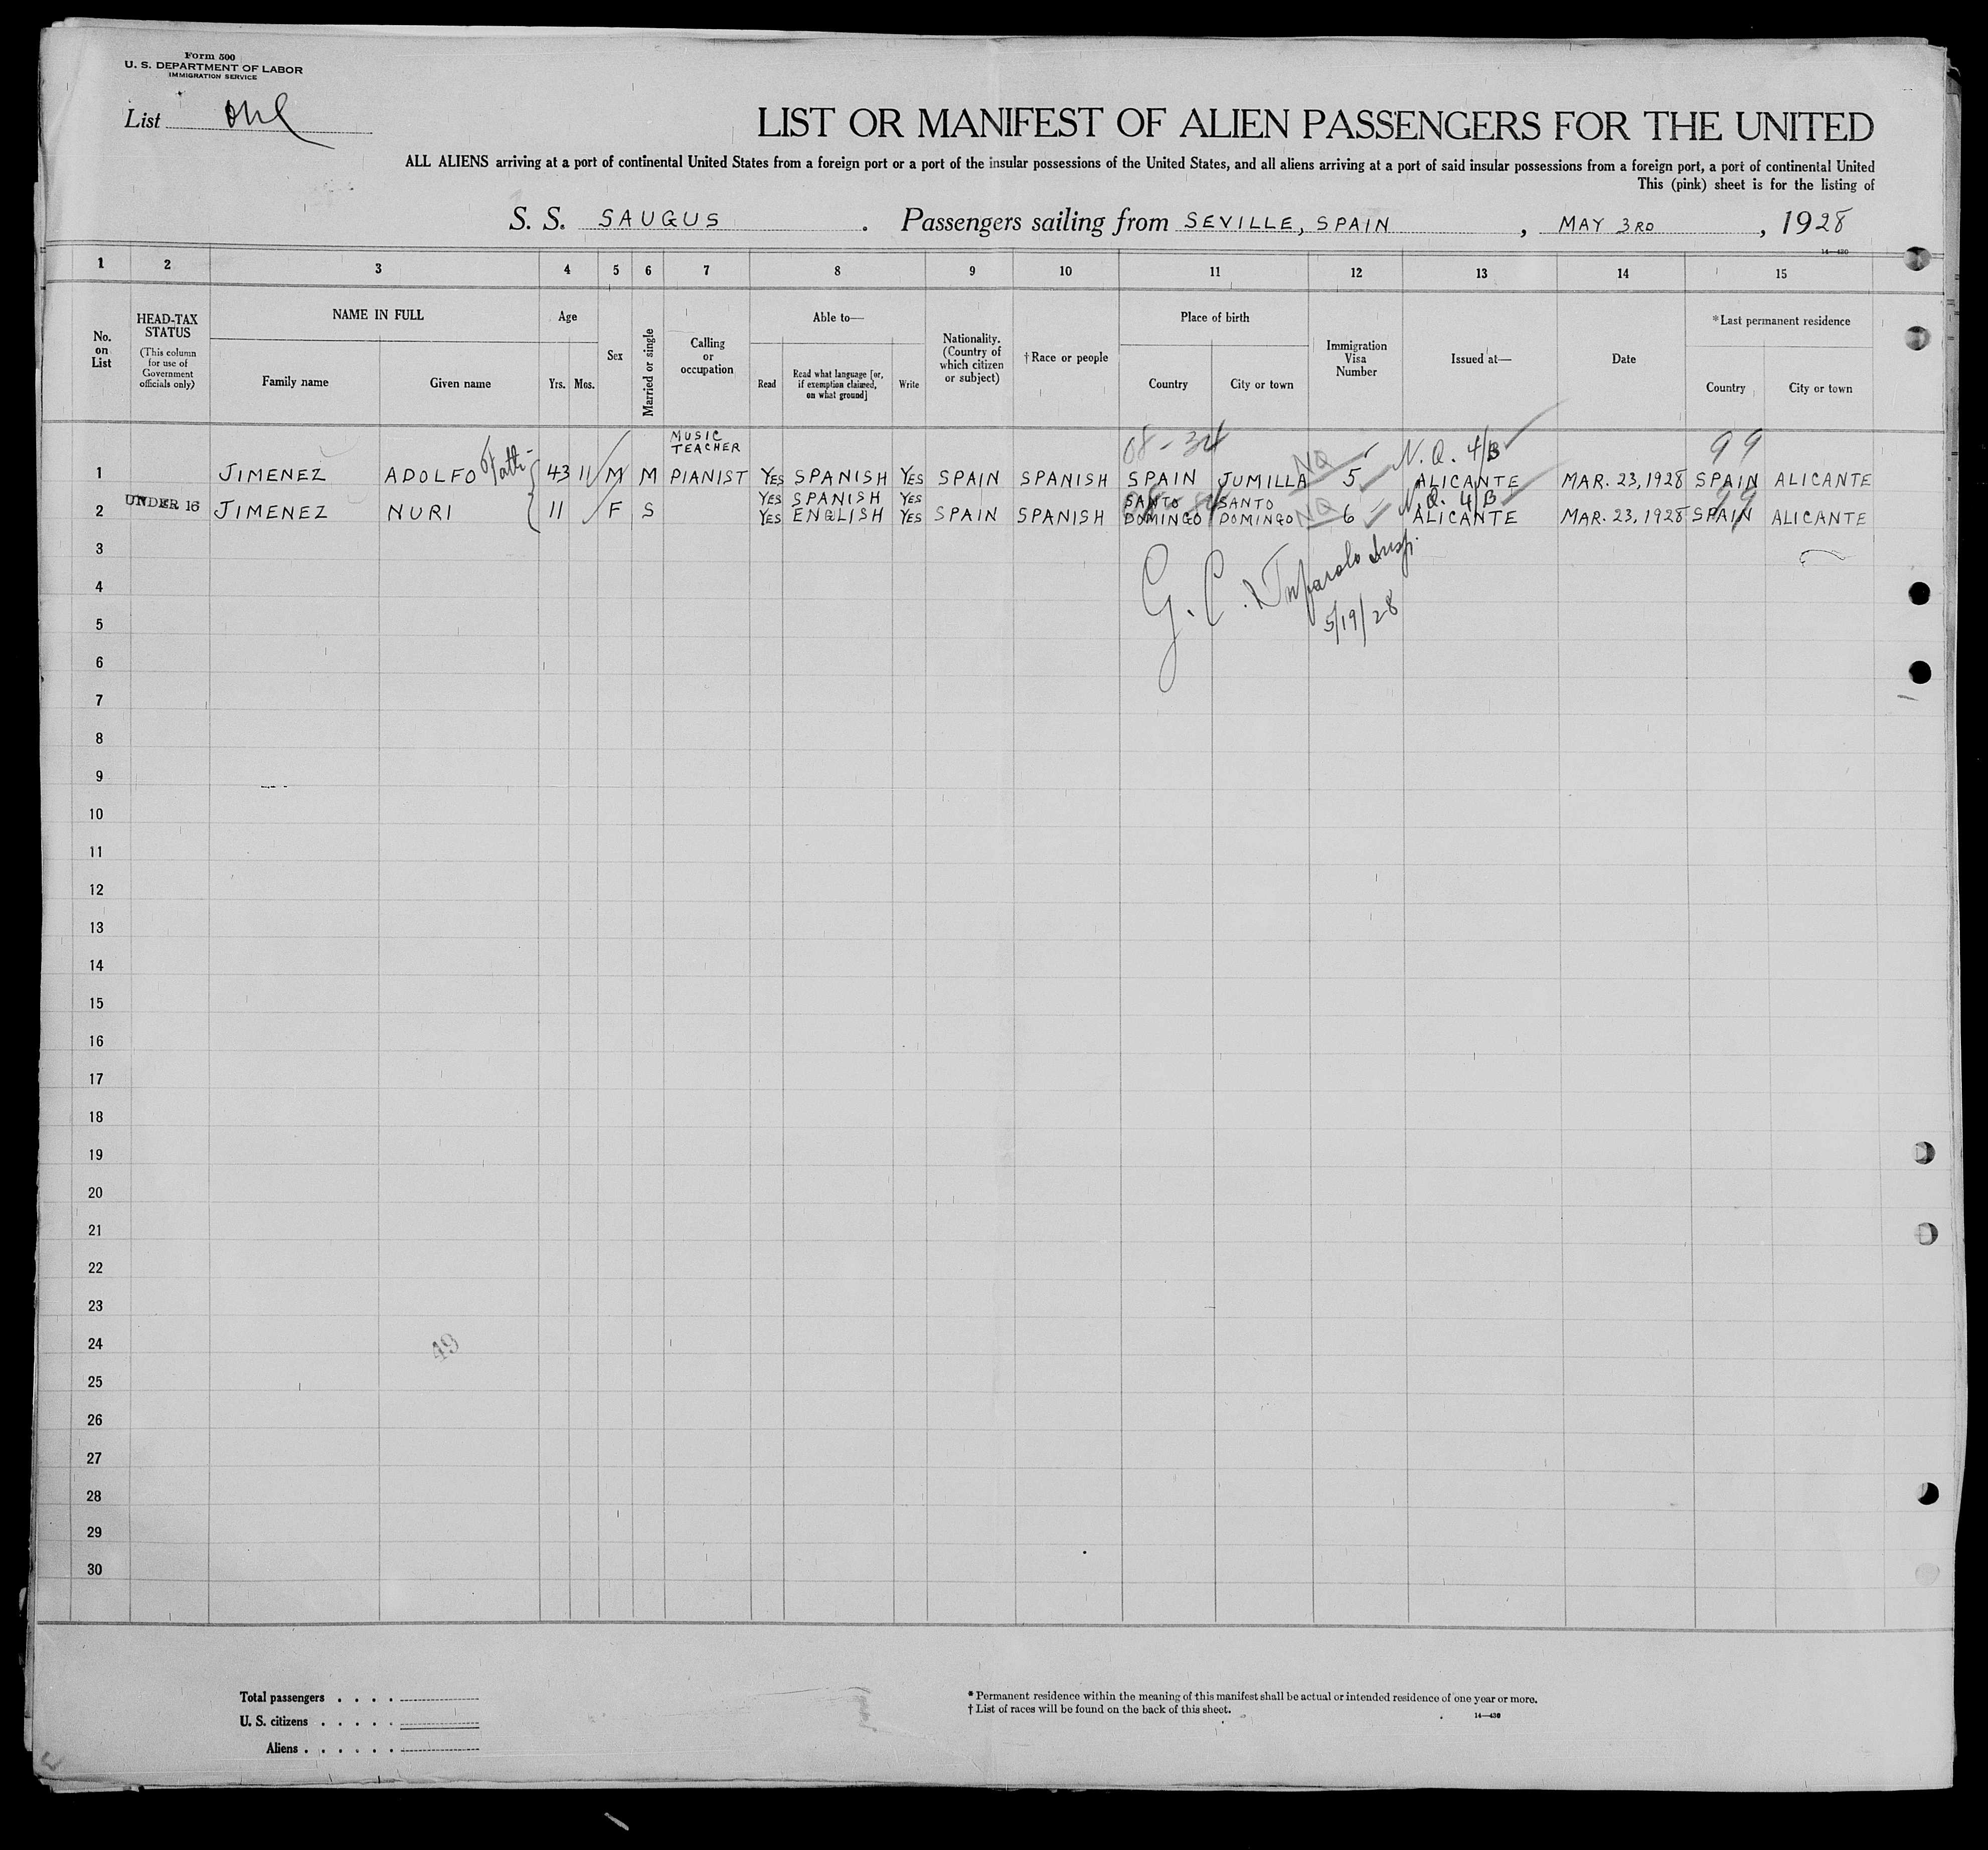 Form 500
U. S. DEPARTMENT OF LABOR
IMMIGRATION SERVICE
List One
LIST OR MANIFEST OF ALIEN PASSENGERS FOR THE UNITED
ALL ALIENS arriving at a port of continental United States from a foreign port or a port of the insular possessions of the United States, and all aliens arriving at a port of said insular possessions from a foreign port, a port of continental United
This (pink) sheet is for the listing of
S. S. SAUGUS. Passengers sailing from SEVILLE, SPAIN, MAY 3RD, 1928
14—430
1 2 3 4 5 6 7 8 9 10 11 12 13 14 15
No. on List
HEAD-TAX STATUS
(This column for use of Government officials only)
NAME IN FULL
Family name
Given name
Age
Yrs. Mos.
Sex
Married or single
Calling or occupation
Able to—
Read
Read what language [or, if exemption claimed, on what ground]
Write
Nationality. (Country of which citizen or subject)
† Race or people
Place of birth
Country
City or town
Immigration Visa Number
Issued at—
Date
* Last permanent residence
Country
City or town
MUSIC TEACHER 08-34 N.Q. 4/B 99
1 JIMENEZ ADOLFO 43 11 M M PIANIST YES SPANISH YES SPAIN SPANISH SPAIN JUMILLA NQ 5 ALICANTE MAR. 23, 1928 SPAIN ALICANTE
YES SPANISH YES SANTO SANTO N.Q. 4/B 99
2 UNDER 16 JIMENEZ NURI 11 F S YES ENGLISH YES SPAIN SPANISH DOMINGO DOMINGO NQ 6 ALICANTE MAR. 23, 1928 SPAIN ALICANTE
3
G. C. Insp.
4
5/19/28
5
6
7
8
9
10
11
12
13
14
15
16
17
18
19
20
21
22
23
24
49
25
26
27
28
29
30
Total passengers . . . .
U. S. citizens . . . . .
Aliens . . . . . .
* Permanent residence within the meaning of this manifest shall be actual or intended residence of one year or more.
† List of races will be found on the back of this sheet.
14—430